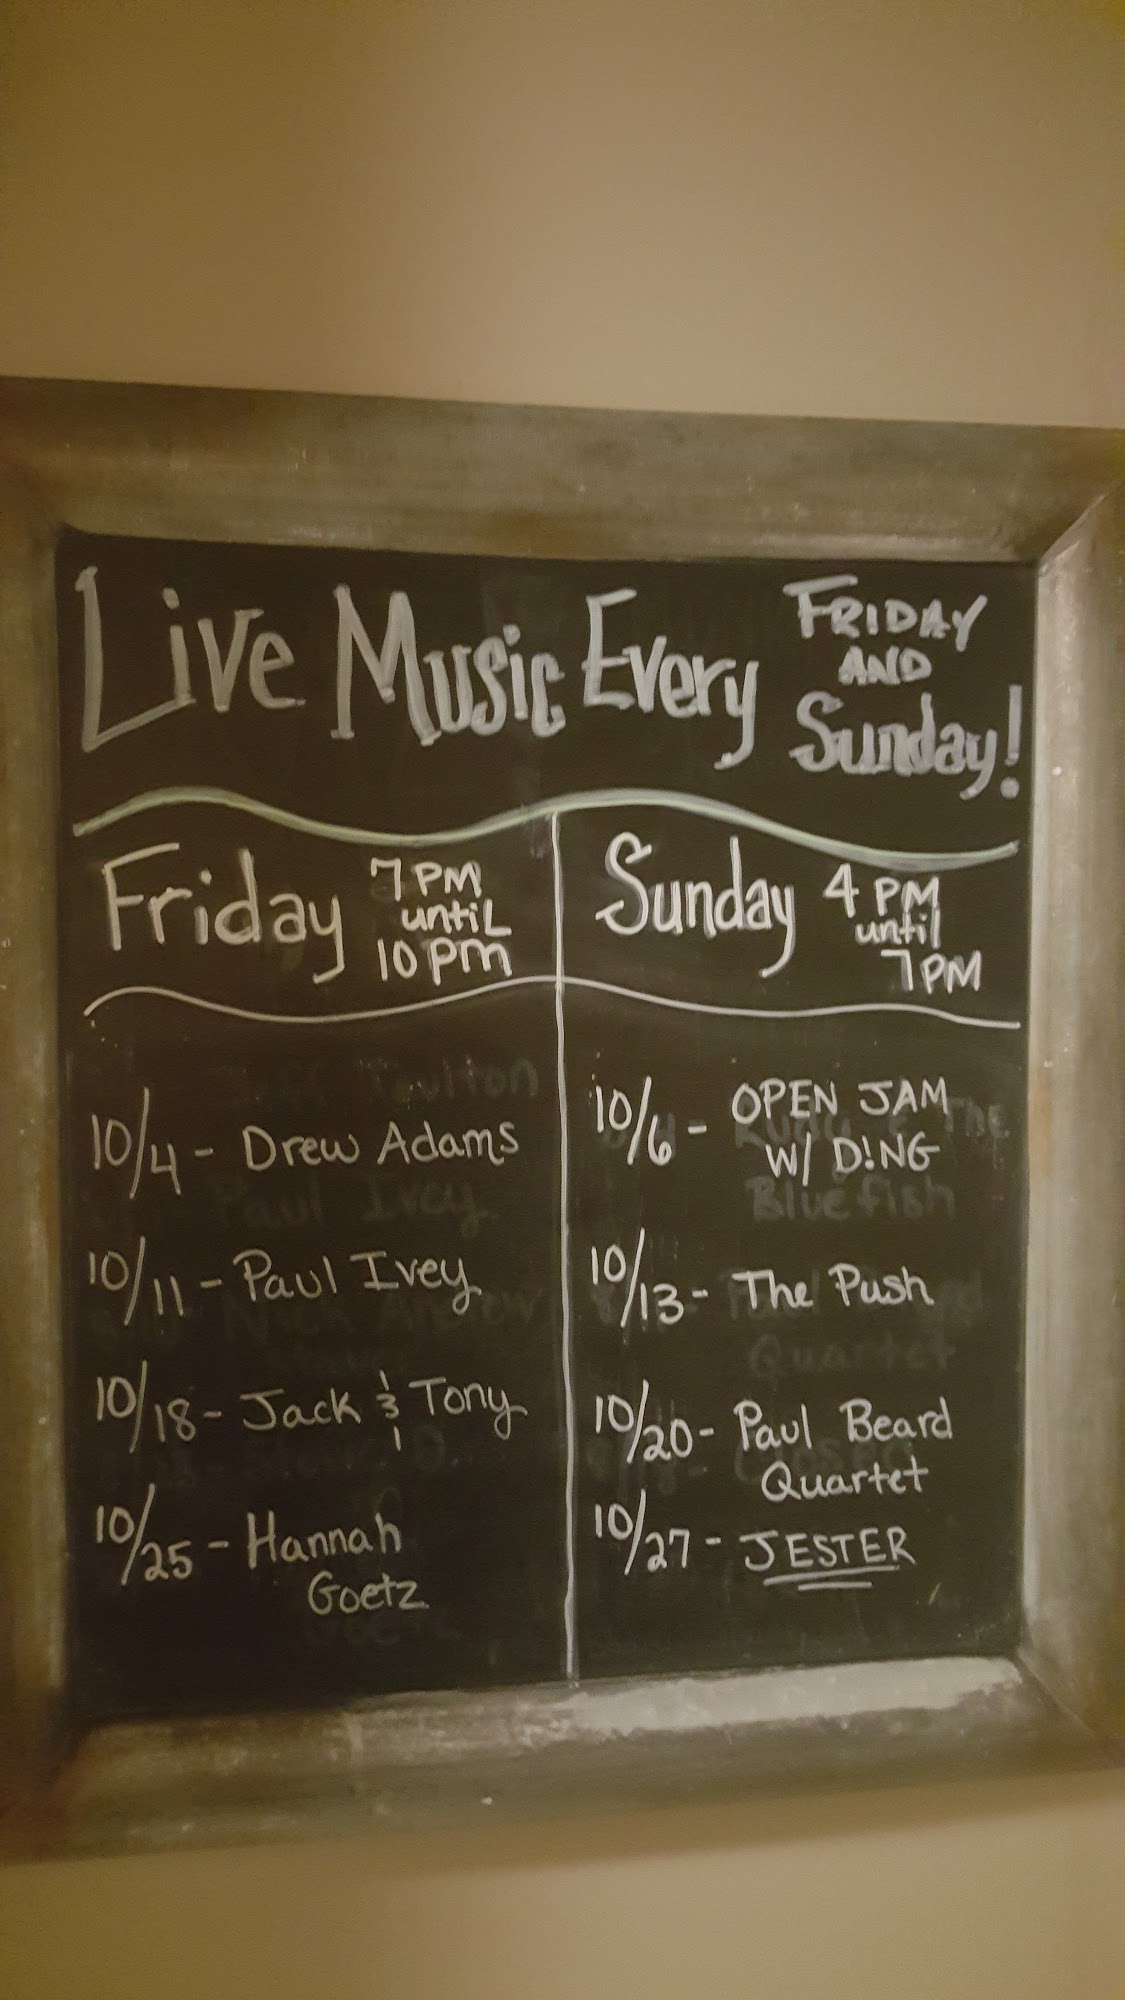 Live Music Every FRIDAY
AND
Sunday!
Friday 7PM
until
10pm
10/4 - Drew Adams
10/11 - Paul Ivey
10/18 - Jack & Tony
10/25 - Hannah
Goetz
Sunday 4PM
until
7PM
10/6 - OPEN JAM
W/ D!NG
10/13 - The Push
10/20 - Paul Beard
Quartet
10/27 - JESTER
Paul Ivey
Bluefish
Quartet